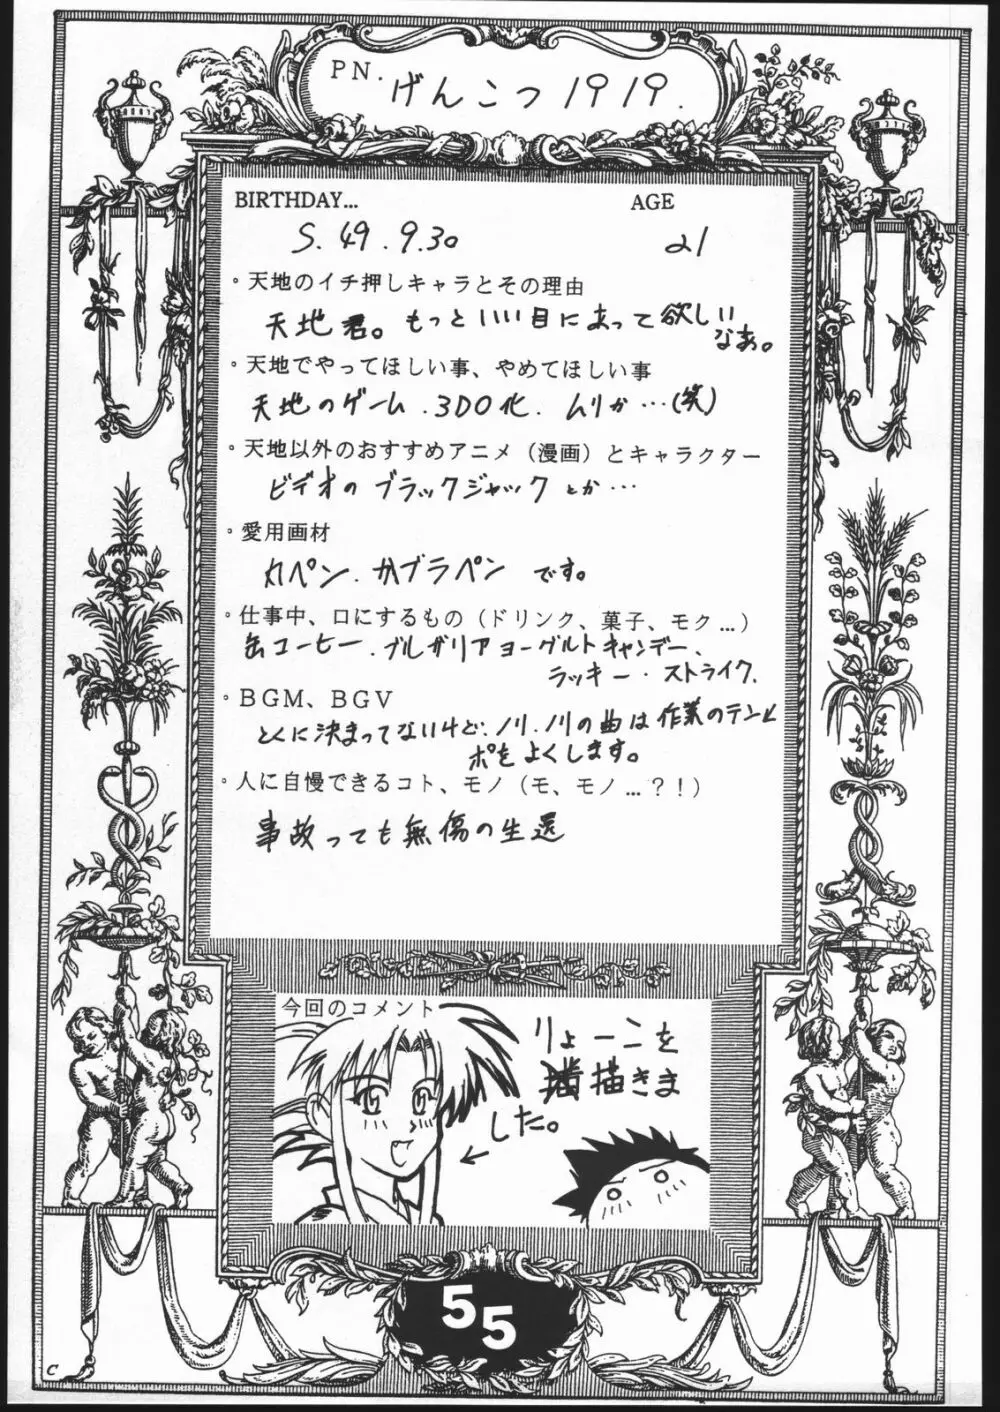 PN. げんこつ1919.
BIRTHDAY... AGE
S. 49. 9. 30 21
・天地のイチ押しキャラとその理由
天地君。もっといい目にあって欲しい
なあ。
・天地でやってほしい事、やめてほしい事
天地のゲーム.3DO化.ムリか…(笑)
・天地以外のおすすめアニメ（漫画）とキャラクター
ビデオのブラックジャックとか…
・愛用画材
丸ペン.カブラペン です。
・仕事中、口にするもの（ドリンク、菓子、モク…）
缶コーヒー.ブルガリアヨーグルトキャンデー、
ラッキー・ストライク.
・BGM、BGV
とくに決まってないけど、ノリ.ノリの曲は作業のテン
ポをよくします。
・人に自慢できるコト、モノ（モ、モノ…？！）
事故っても無傷の生還
今回のコメント
りょーこを
描きま
した。
55
C